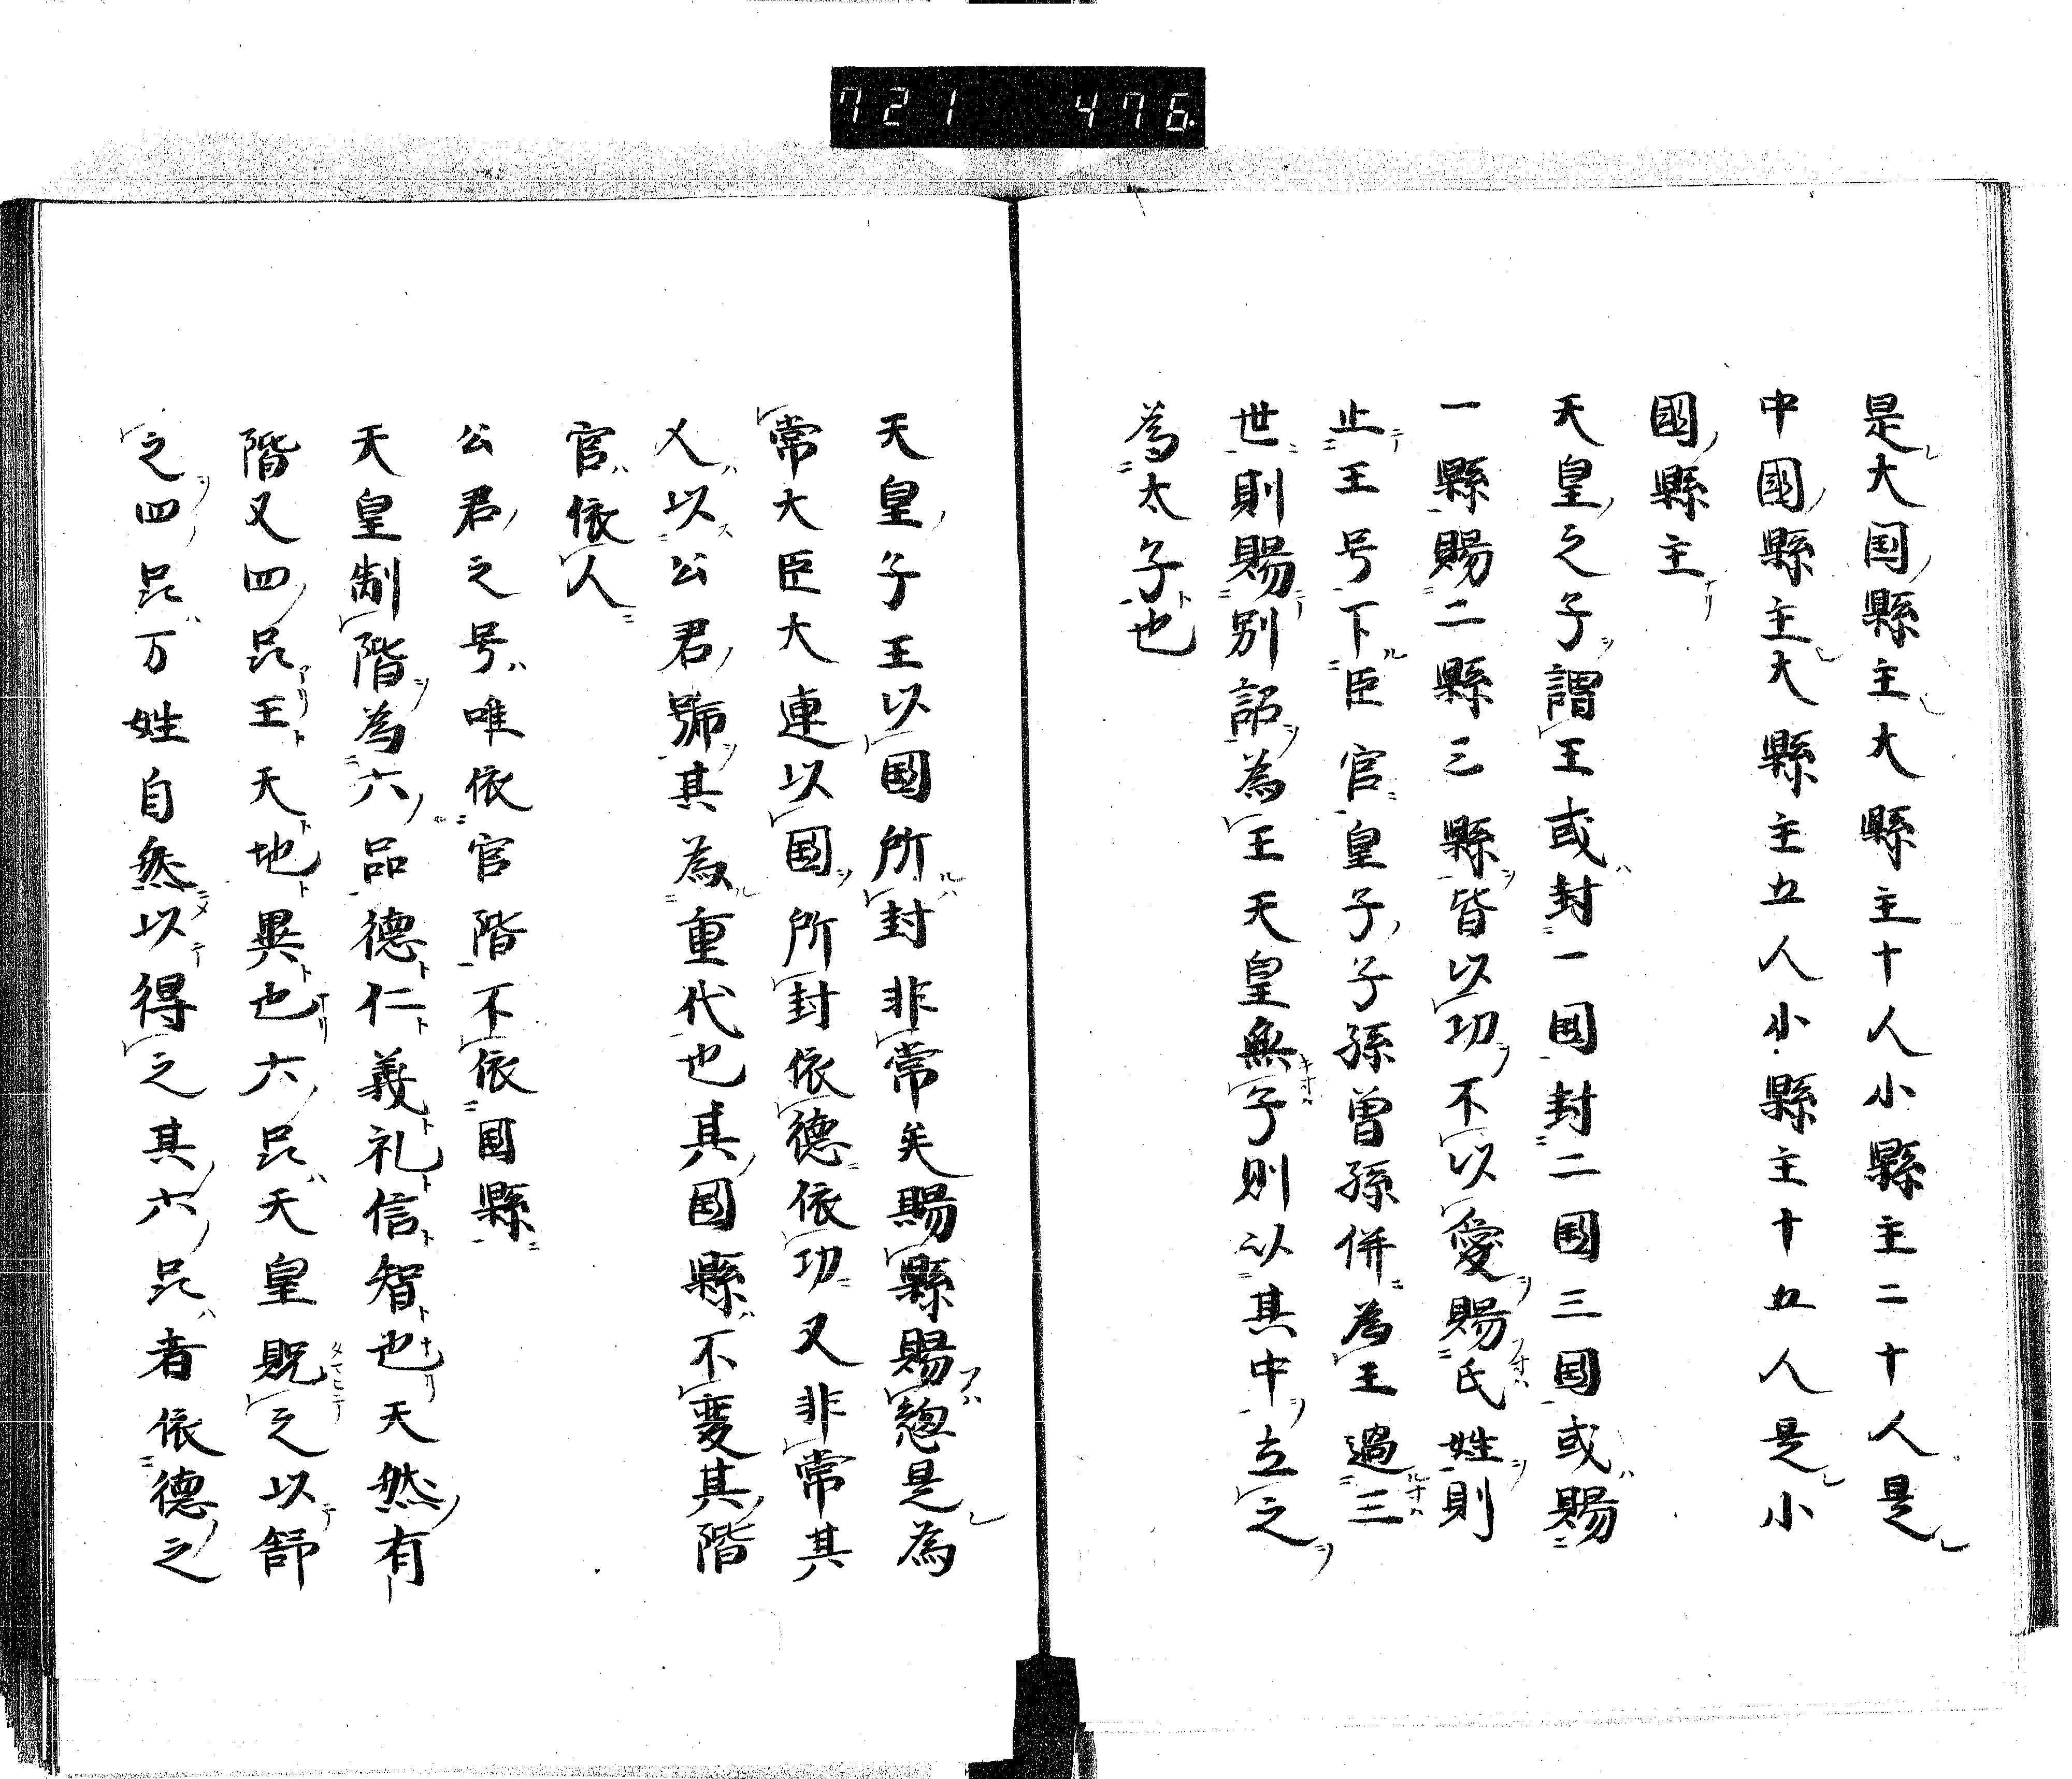 721 476.
是大国縣主大縣主十人小縣主二十人是
中國縣主大縣主五人小縣主十五人是小
國縣主
天皇之子謂王或封一国封二国三国或賜
一縣賜二縣三縣皆以功不以愛賜氏姓則
止王号下臣官皇子子孫曽孫併為王過三
世則賜別詔為王天皇無子則以其中立之
為太子也
天皇子王以國所封非常矣賜縣賜惣是為
常大臣大連以国所封依德依功又非常其
人以公君號其為重代也其国縣不变其階
官依人
公君之号唯依官階不依国縣
天皇制階為六品德仁義礼信智也天然有
階又四品王天地異也六品天皇貺之以部
之四品万姓自然以得之其六品者依德之